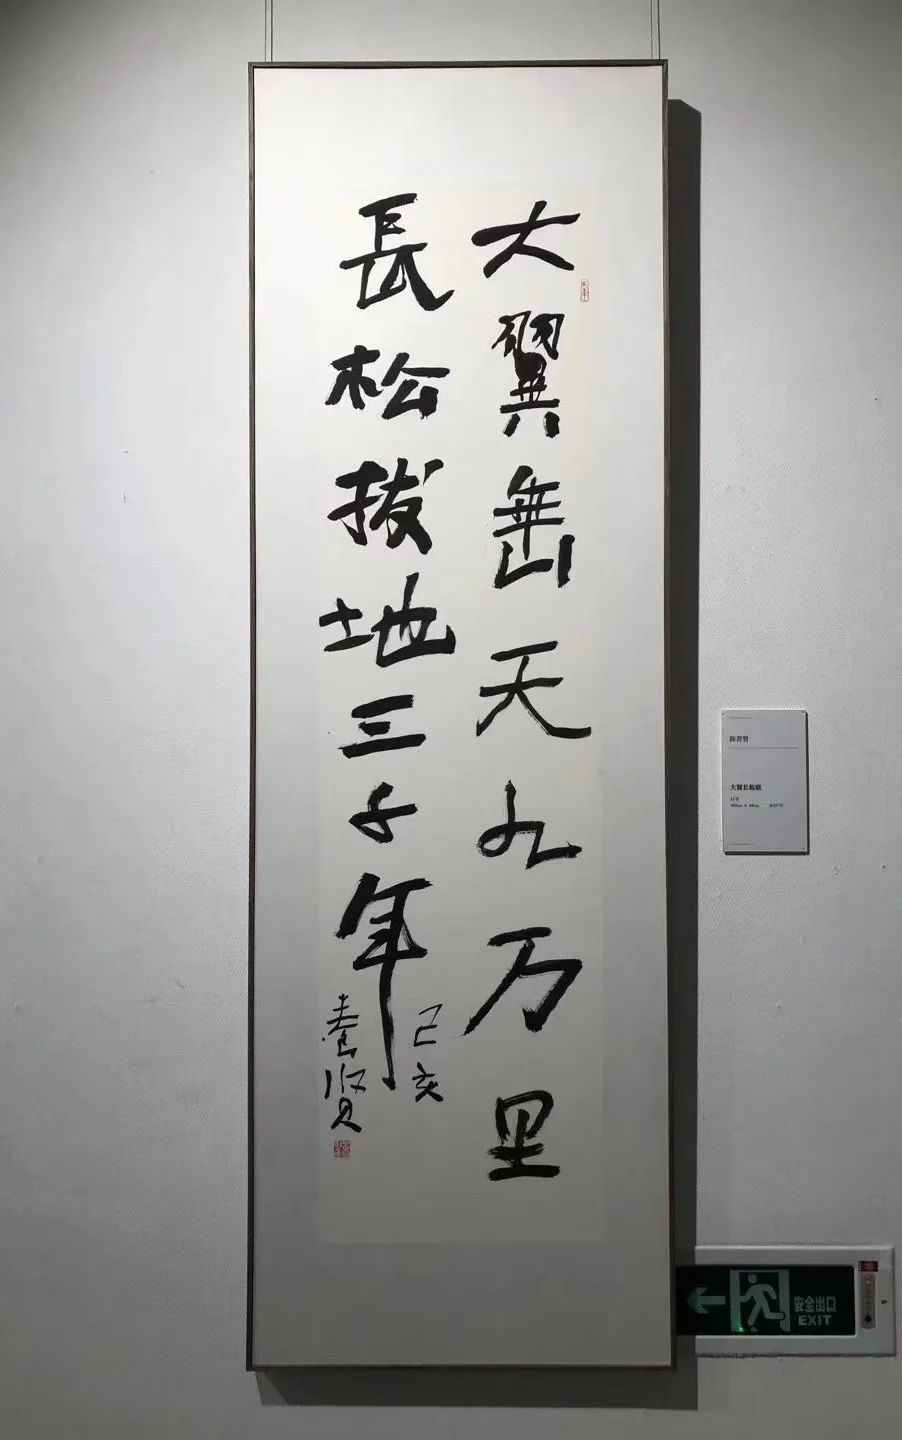 大翼垂天九万里
長松拔地三千年
己亥
養賢
大翼长松联
安全出口
EXIT